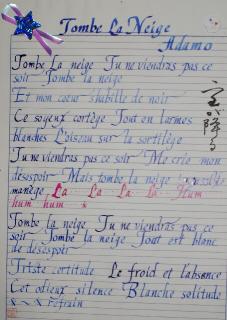 Tombe La Neige
Adamo
Tombe La neige Tu ne viendras pas ce
soir Tombe la neige
Et mon coeur s'habille de noir
Ce soyeux cortège Tout en larmes
blanches L'oiseau sur la
sortilège
Tu ne viendras pas ce soir Me crie mon
désespoir Mais tombe la neige
manège La La La La Hum
hum hum
Tombe la neige Tu ne viendras pas ce
soir Tombe la neige Tout est blanc
de désespoir
Triste certitude Le froid et l'absence
Cet odieux silence Blanche solitude
refrain